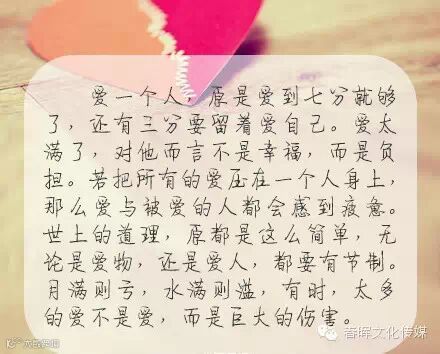 爱一个人，原是爱到七分就够
了，还有三分要留着爱自己。爱太
满了，对他而言不是幸福，而是负
担。若把所有的爱压在一个人身上，
那么爱与被爱的人都会感到疲惫。
世上的道理，原都是这么简单，无
论是爱物，还是爱人，都要有节制。
月满则亏，水满则溢，有时，太多
的爱不是爱，而是巨大的伤害。
春晖文化传媒